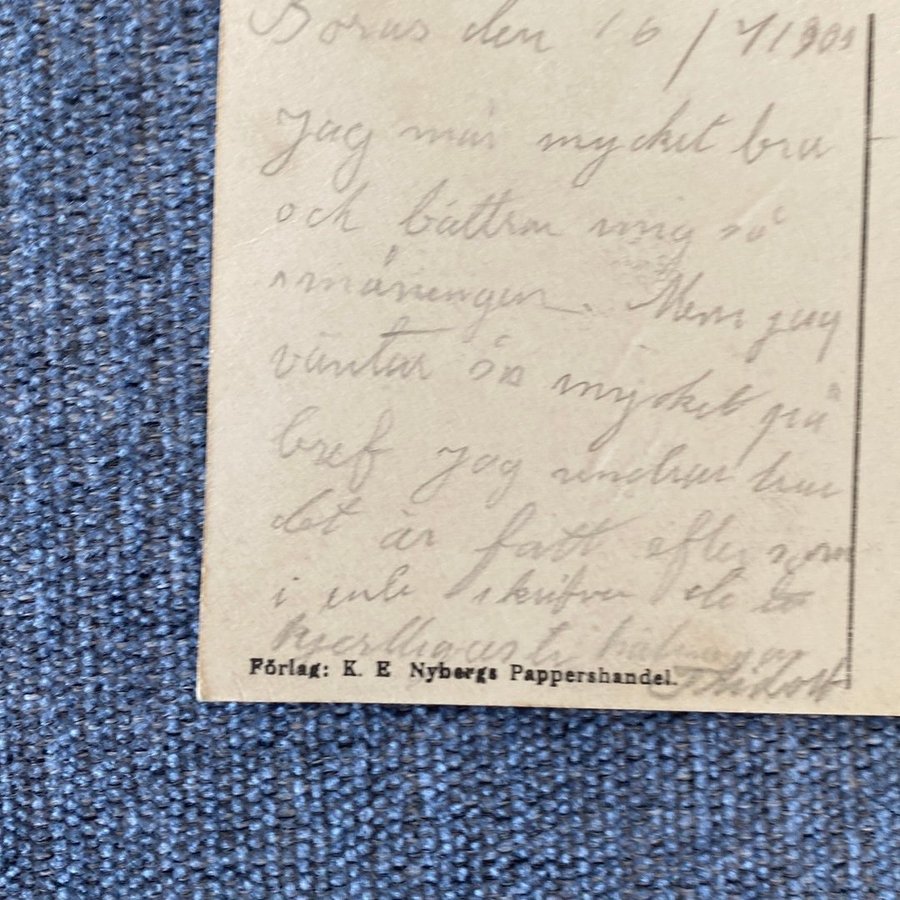 Borås den 16/7 1909
Jag mår mycket bra
och bättrar mig så
småningom. Men jag
väntar så mycket på
bref Jag undrar hur
det är fatt efter som
i inte skrifver
hjertligaste hälsningar
Förlag: K. E Nybergs Pappershandel.